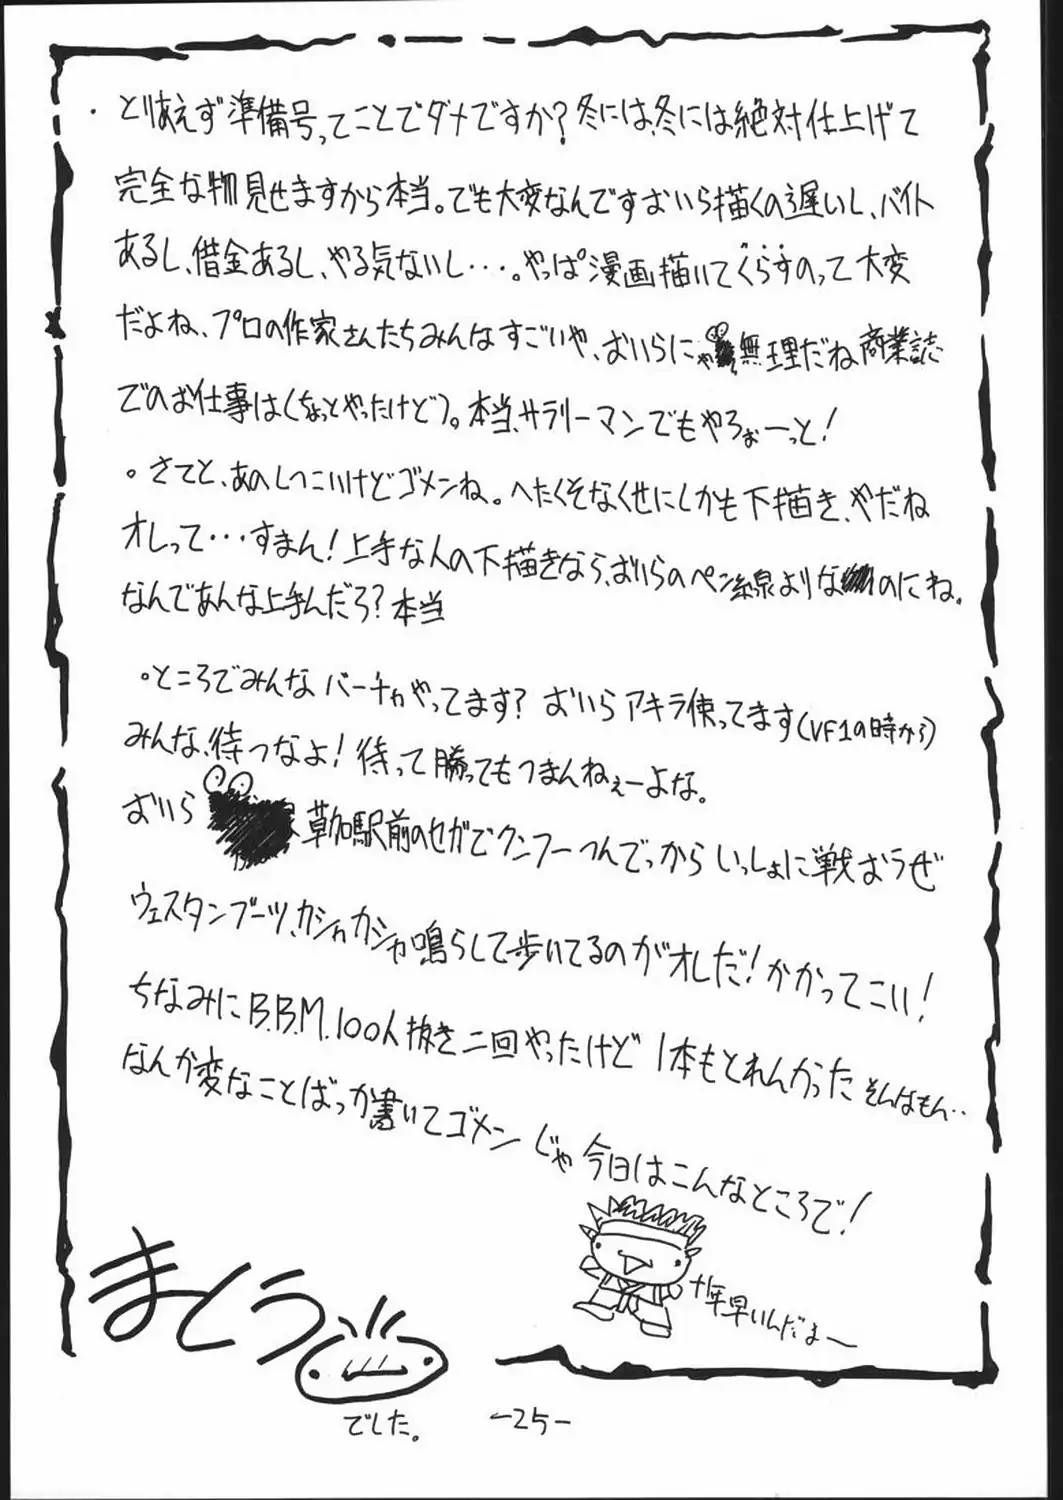 ・とりあえず準備号ってことでダメですか?冬には、冬には絶対仕上げて
完全な物見せますから本当。でも大変なんですおいら描くの遅いし、バイト
あるし、借金あるし、やる気ないし・・・。やっぱ漫画描いてくらすのって大変
だよね、プロの作家さんたちみんなすごいや、おいらにゃ無理だね商業誌
でのお仕事は(ちょっとやったけど)。本当、サラリーマンでもやろぉーっと!
。さてと、あのしつこいけどゴメンね。へたくそなくせにしかも下描き、やだね
オレって・・・すまん!上手な人の下描きなら、おいらのペン線よりな のにね。
なんであんな上手んだろ?本当
。ところでみんなバーチャやってます? おいらアキラ使ってます(VF1の時から)
みんな、待つなよ!待って勝ってもつまんねぇーよな。
おいら 草加駅前のセガでクンフーつんでっからいっしょに戦おうぜ
ウェスタンブーツ、カシャカシャ鳴らして歩いてるのがオレだ!かかってこい!
ちなみにB.B.M.100人抜き二回やったけど1本もとれんかった そんなもん‥
なんか変なことばっか書いてゴメン じゃ今日はこんなところで!
十年早いんだよー
まとう
でした。
-25-